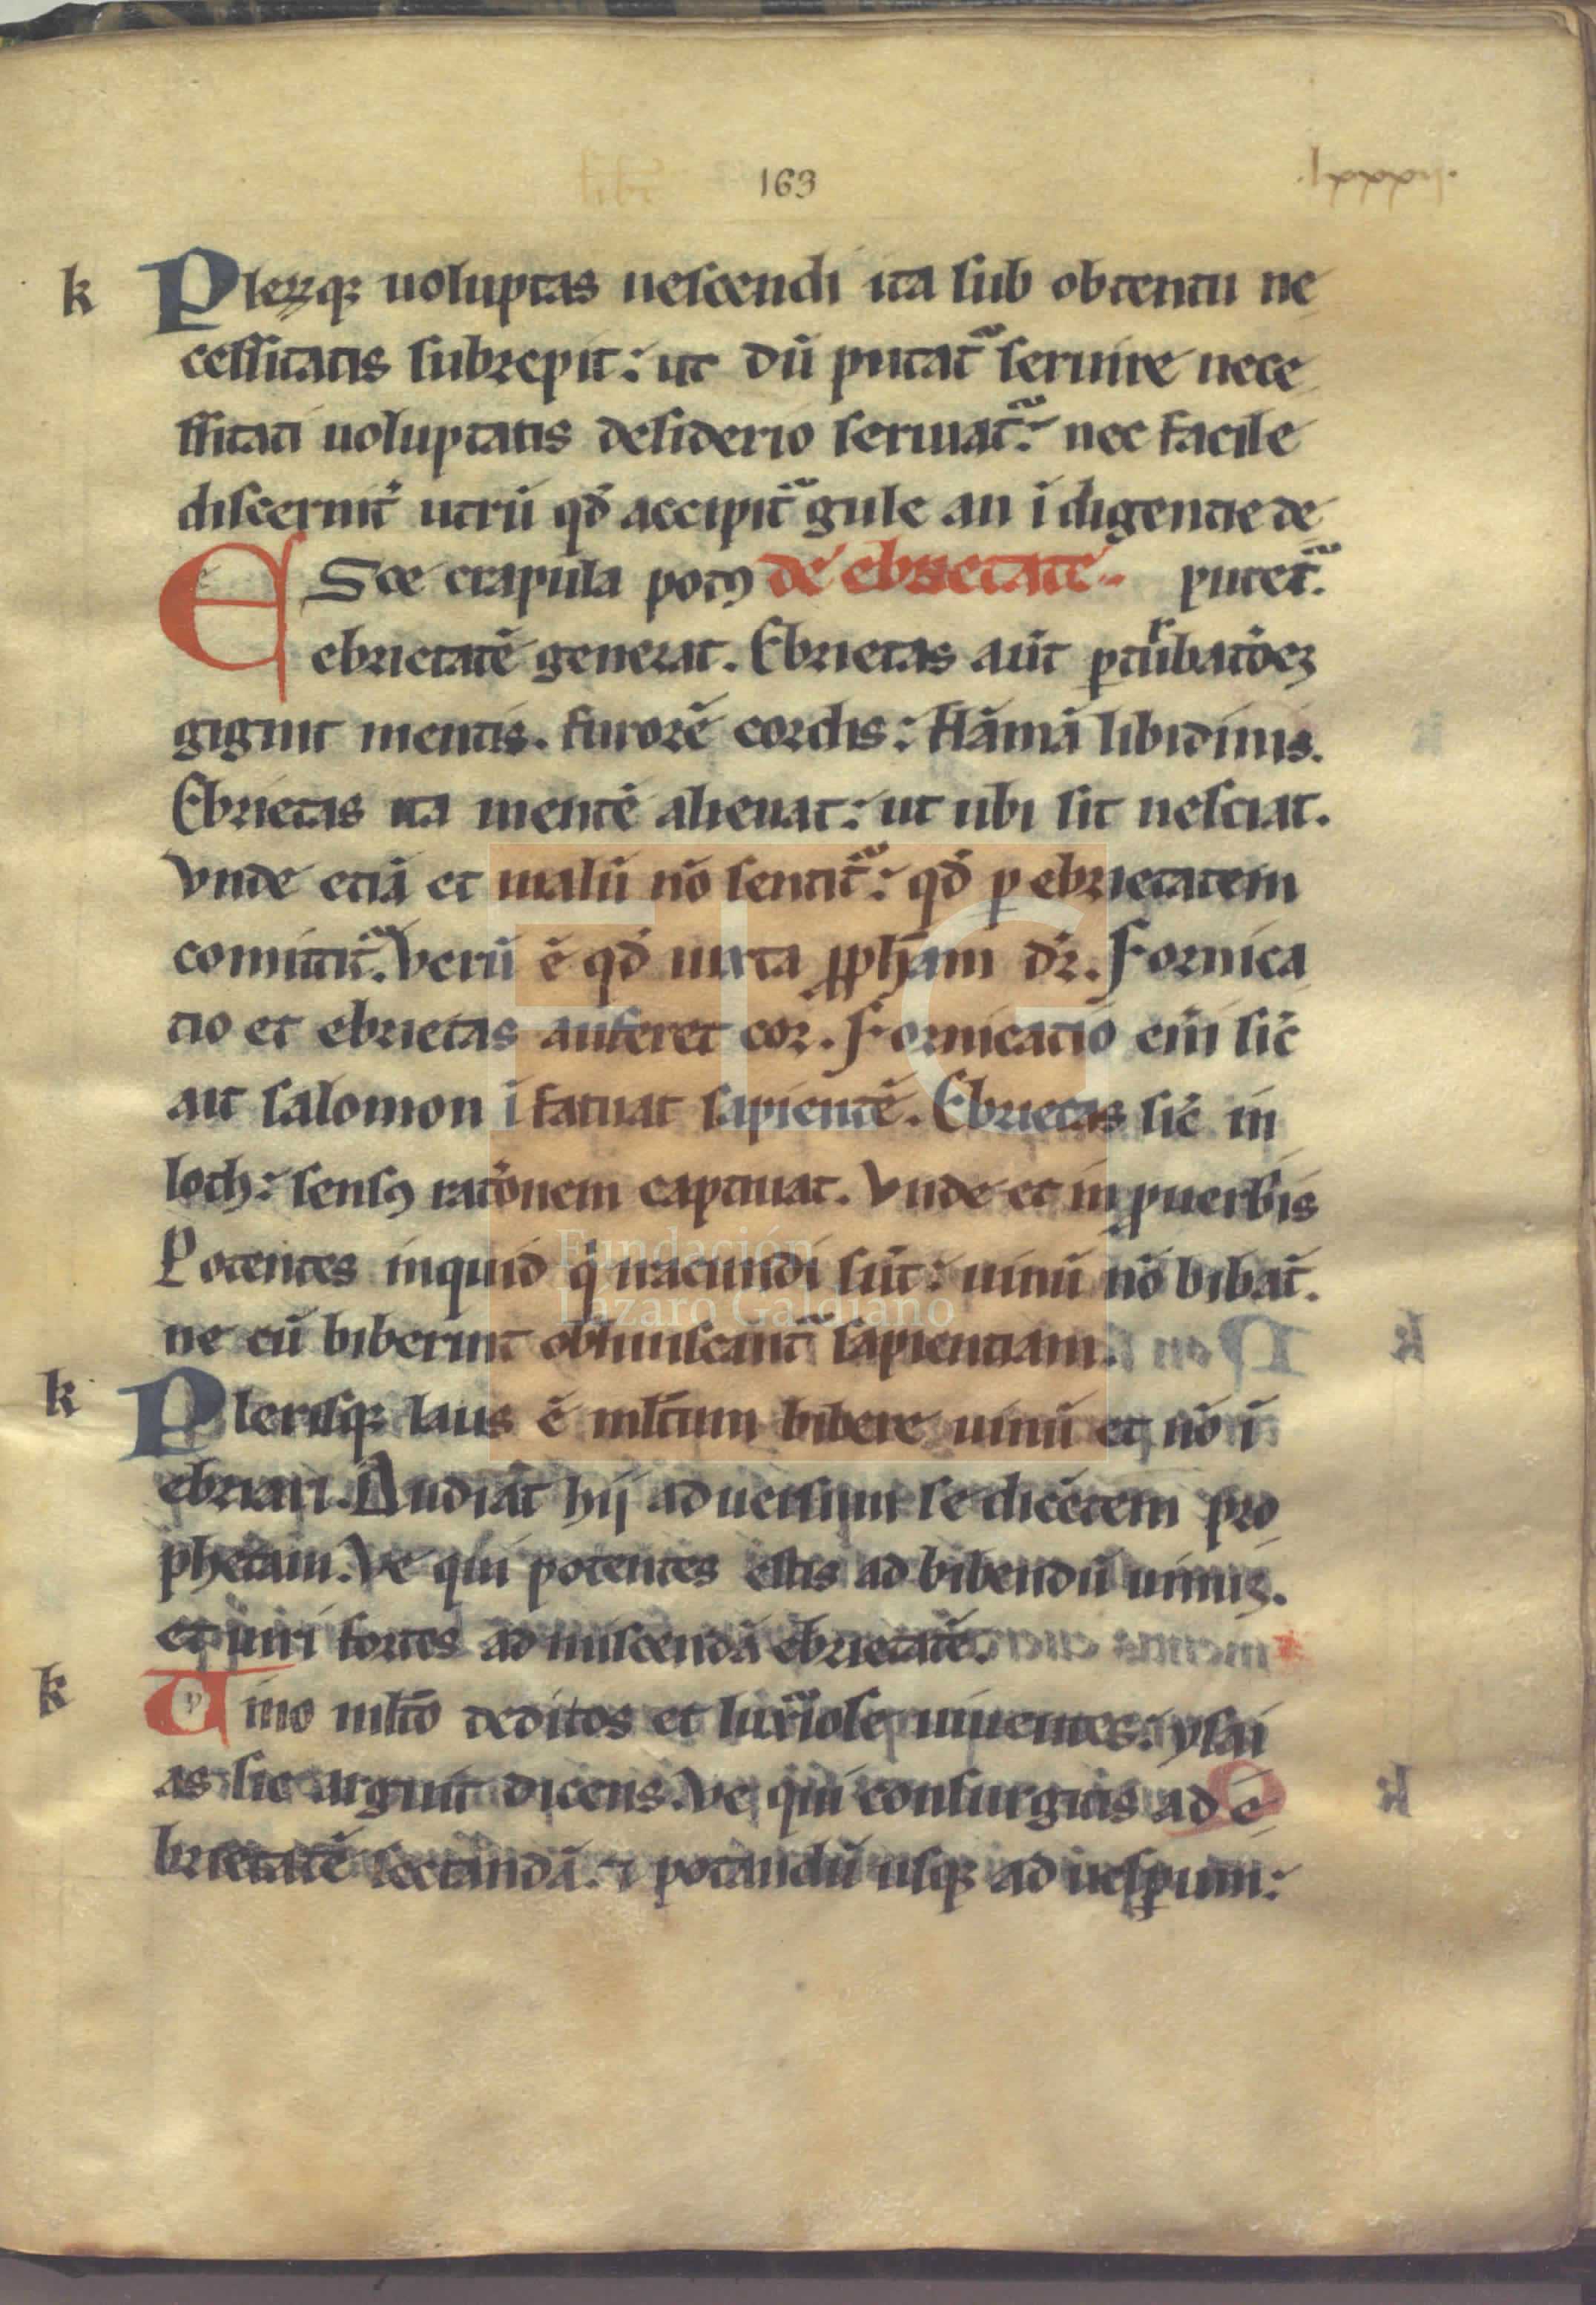 163
k Plerꝝqꝫ uoluptas uescendi ita sub obtentu ne
cessitatis subrepit: ut dū putat᷑ seruire nece
ssitati uoluptatis desiderio seruiat᷑: nec facile
discernit᷑ utrū qđ accipit᷑ gule an īdigentie de
ESce crapula potꝰ de ebrietate putet᷑.
ebrietatē generat. Ebrietas aūt ꝑturbatōēꝫ
gignit mentis. furorē cordis: flāmā libidinis.
Ebrietas ita mentē alienat: ut ubi sit nesciat.
Vnde etiā et malū nō sentit᷑: qđ ꝑ ebrietatem
comittit᷑. Verū ē qđ iuxta ꝓph̄am dr̄. Fornica
tio et ebrietas auferet cor. Fornicatio eīn sic̄
ait salomon īfatuat sapientē. Ebrietas sic̄ in
loth: sensꝰ ratōnem captiuat. Vnde et in ꝓuerbiis
Potentes inquid q̇ iracundi sūt: uinū nō bibāt.
ne cū biberint obliuiscant᷑ sapientiam.
k Plerisqꝫ laus ē ml̄tum bibere uinū et nō ī
ebriari. Audiāt hij aduersum se dicētem pro
phetam. Ve qui potentes estis ad bibendū uinuꝫ.
et uiri fortes ad miscendā ebrietatē.
k Vino ml̄to deditos et luxuriose uiuentes: ysai
as sic arguit dicens. Ve qui consurgitis ad e
brietatē sectandā. ⁊ potandū usqꝫ ad uesꝑum:
Fundación
Lázaro Galdiano